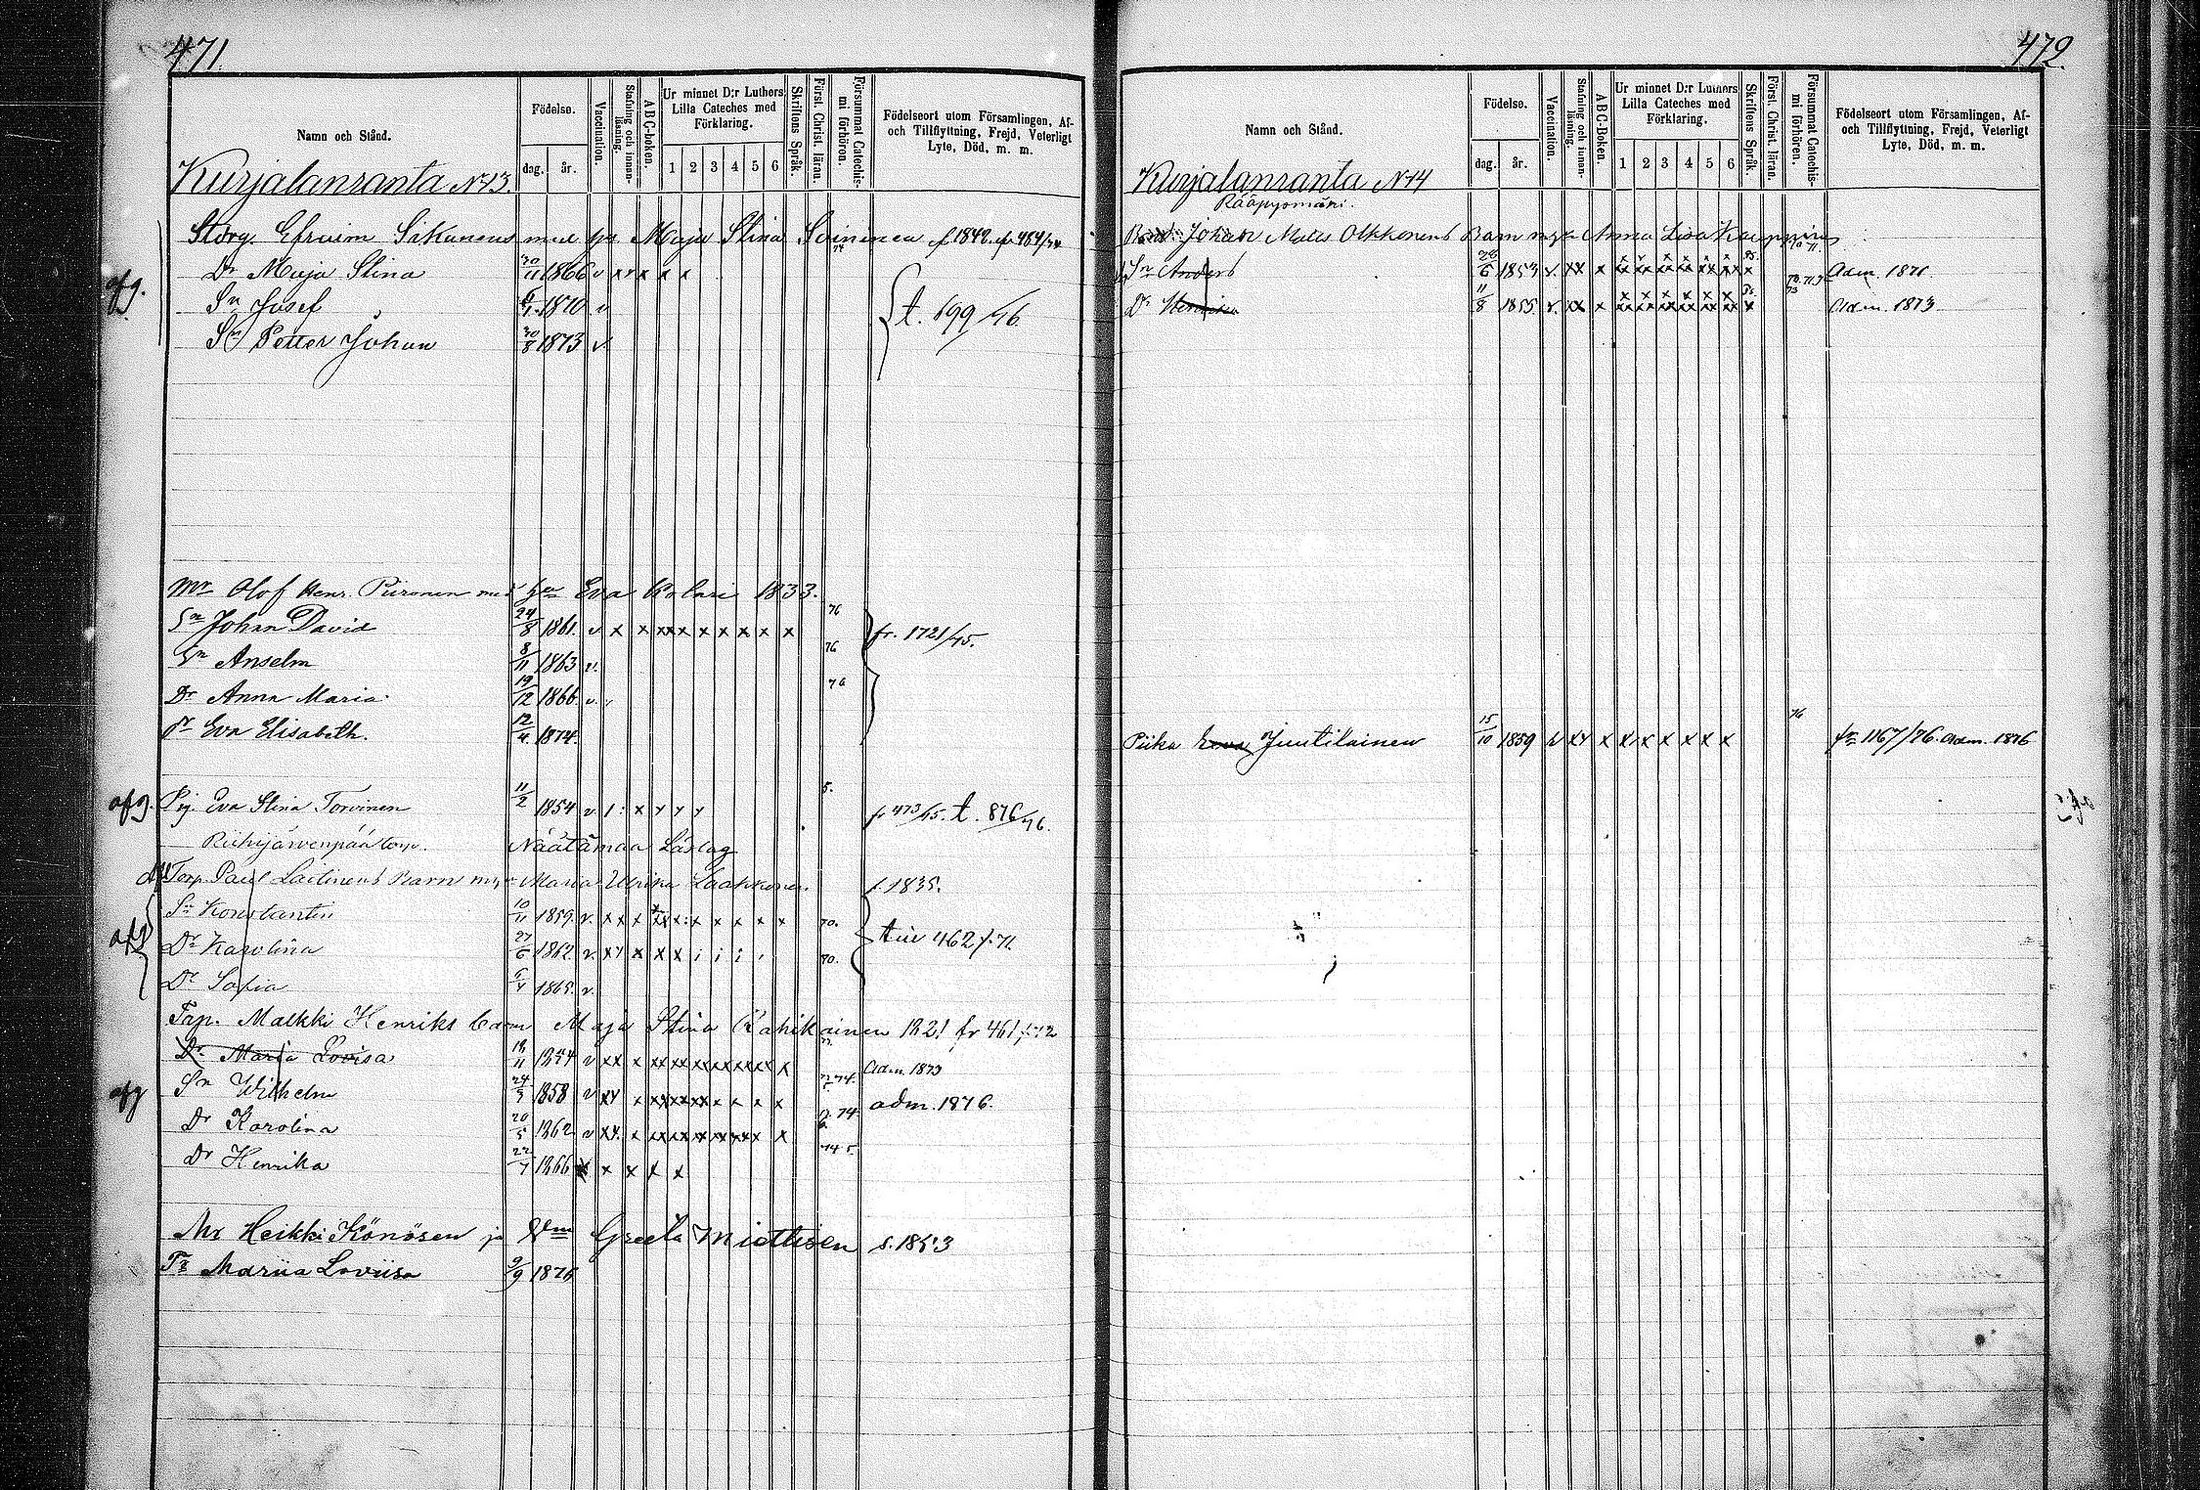 471.
Namn och Stånd.
Födelse.
dag.
år.
Vaccination.
Stafning och innan-läsning.
ABC-boken.
Ur minnet D:r Luthers Lilla Cateches med Förklaring.
1 2 3 4 5 6
Skriftens Språk.
Först. Christ. läran.
Försummat Catechis-mi förhören.
Födelseort utom Församlingen, Af- och Tillflyttning, Frejd, Veterligt Lyte, Död, m. m.
Kurjalanranta N:13.
Efraim med Maja Stina Soininen f. 1849.
afg. Dr Maja Stina 30/11 1866 v x x x x x
Sn Josef 1870 v t. 699/76.
Sn Petter Johan 30/8 1873 v.
Mr Olof Henr. Piironen Eva 1833.
Sn Johan David 24/8 1861. v x x xx x x x x x x 76 fr. 1721/75.
Sn Anselm 8/11 1863 v. 76
Dr Anna Maria 19/12 1866. v. 76
Dr Eva Elisabeth. 12/4 1874.
afg. Pig. Eva Stina Torvinen 11/2 1854 v 5. fr 473/75. t. 876/76.
Riihijärvenpää torp. Näätämaa
Torp. Paul Laitinens Barn Maria Ulrika Laakkonen f. 1835.
afg Sn Konstantin 10/11 1859. v. x x x 70.
Dr Karolina 27/6 1862. v. 70. 462 71.
Dr Sofia 1865. v.
Malkki Henriks Maja Stina Rahikainen 1821 fr 461
Dr Maria Lovisa 1854 v xx x Adm. 1873
afg Sn Wilhelm 1858 v adm. 1876.
Dr Karolina 20/5 1862 v xx. x
Dr Henrika 22/7 1866 x x x x
Mr Heikki Könösen ja Greeta Miettisen s. 1853
Tr Mariia Loviisa 9/9 1876
472.
Namn och Stånd.
Födelse.
dag.
år.
Vaccination.
Stafning och innan-läsning.
ABC-Boken.
Ur minnet D:r Luthers Lilla Cateches med Förklaring.
1 2 3 4 5 6
Skriftens Språk.
Först. Christ. läran.
Försummat Catechis-mi förhören.
Födelseort utom Församlingen, Af- och Tillflyttning, Frejd, Veterligt Lyte, Död, m. m.
Kurjalanranta N:14
Rääpysmäki.
Johan Mats Olkkonens Barn Anna Lisa Kauppinen
Sn Anders 1853 v. xx x Adm. 1871.
Dr Henrika 11/8 1855 v. xx x Adm. 1873.
Piika Eeva Juutilainen 15/10 1859 v xx x x x x x x x 76 fr 1167/76. Adm. 1876